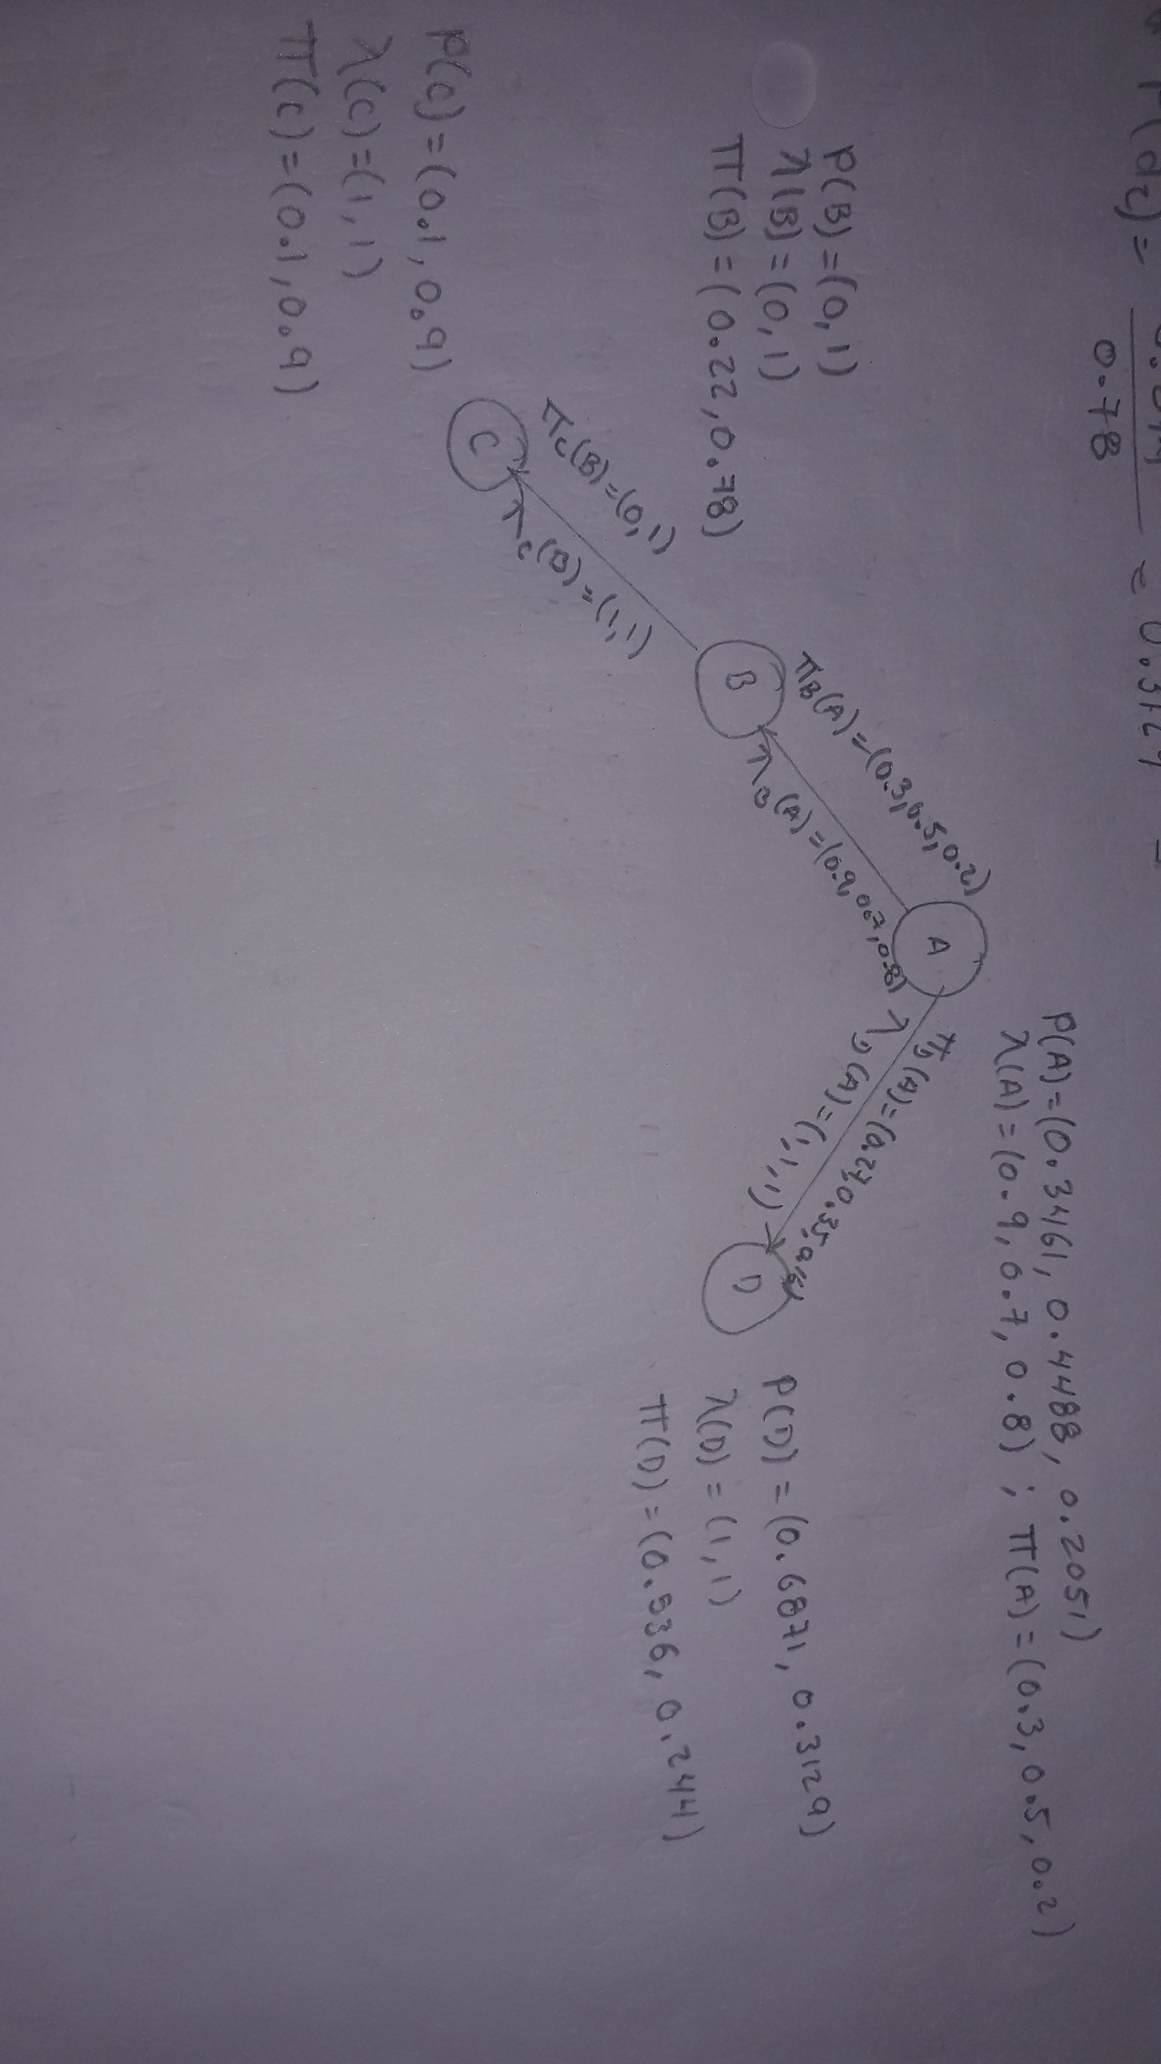 P(d2) = 0.244 / 0.78 = 0.3129
P(A)=(0.3461, 0.4488, 0.2051)
λ(A)=(0.9, 0.7, 0.8) ; π(A)=(0.3, 0.5, 0.2)
A
πB(A)=(0.3,0.5,0.2)
λB(A)=(0.9,0.7,0.8)
πD(A)=(0.27,0.35,0.16)
λD(A)=(1,1,1)
P(B)=(0,1)
λ(B)=(0,1)
π(B)=(0.22,0.78)
B
D
P(D)=(0.6871, 0.3129)
λ(D)=(1,1)
π(D)=(0.536, 0.244)
πC(B)=(0,1)
λC(B)=(1,1)
C
P(C)=(0.1,0.9)
λ(C)=(1,1)
π(C)=(0.1,0.9)